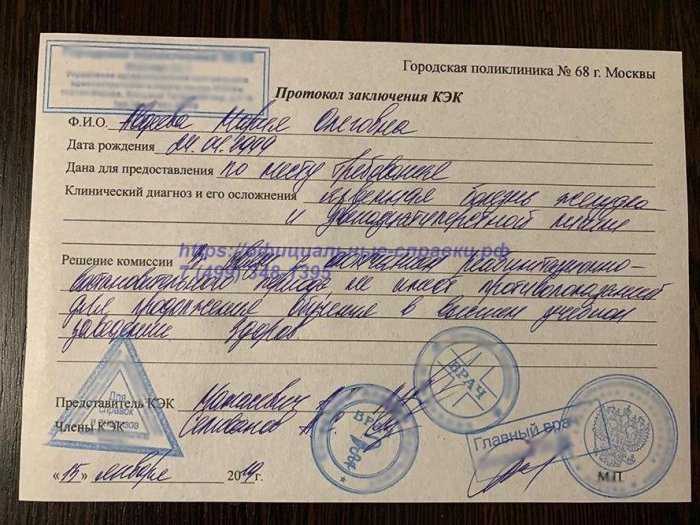 Городская поликлиника № 68 г. Москвы
Протокол заключения КЭК
Ф.И.О. Авдеева Мария Олеговна
Дата рождения
Дана для предоставления по месту требования
Клинический диагноз и его осложнения язвенная болезнь желудка
и двенадцатиперстной кишки
https://официальные-справки.рф
Решение комиссии В связи с окончанием реабилитационно-
7 (499) 348-1395
восстановительного периода не имеет противопоказаний
для продолжение обучение в высшем учебном
заведении. Здоров
Для
справок
ВРАЧ
Представитель КЭК
Члены КЭК
ВРАЧ
Главный врач
«15» января 2019г.
М.П.